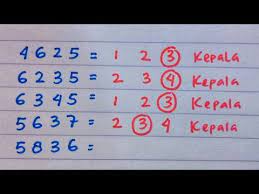 4625 = 1 2 3 Kepala
6235 = 2 3 4 Kepala
6345 = 1 2 3 Kepala
5637 = 2 3 4 Kepala
5836 =